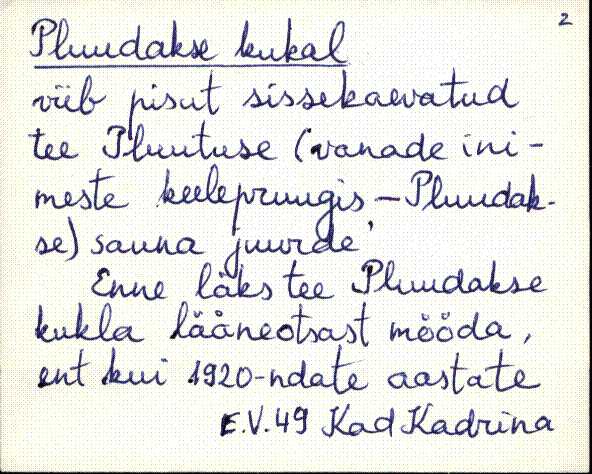 2
Pluudakse kukal
viib pisut sissekaevatud
tee Pluutuse (vanade ini-
meste keelepruugis – Pluudak-
se) sauna juurde'
Enne läks tee Pluudakse
kukla lääneotsast mööda,
ent kui 1920-ndate aastate
E.V. 49 Kad Kadrina